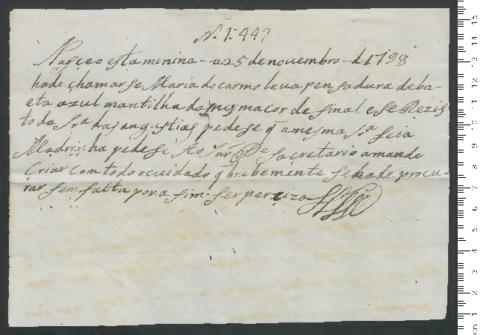 N. 1.447
Nasceo esta menina - a 25 de novembro - d 1798
hade chamarse Maria do carmo leva pensadura de ba
eta azul mantilha da mesma cor de sinal e se Rezis
to da Sra. das angustias pedese q a mesma Sra seia
Madrinha pedese Ao Snr secretario a mande
Criar com todo o cuidado q brebemente se hade procu
rar sem falta por a sim ser percizo